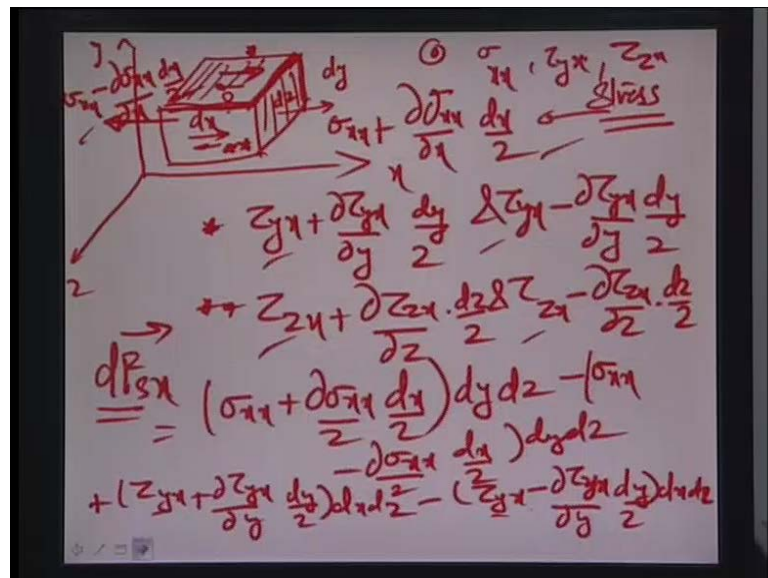 y
dy
O σxx, τyx, τzx
σxx - ∂σxx/∂x dx/2
dx
dz
σxx + ∂σxx/∂x dx/2 ← Stress
x
z
* τyx + ∂τyx/∂y dy/2 & τyx - ∂τyx/∂y dy/2
** τzx + ∂τzx/∂z . dz/2 & τzx - ∂τzx/∂z . dz/2
dFsx
= (σxx + ∂σxx/2 dx/2) dy dz - (σxx
- ∂σxx/2 dx/2) dy dz
+ (τyx + ∂τyx/∂y dy/2) dx dz - (τyx - ∂τyx/∂y dy/2) dx dz